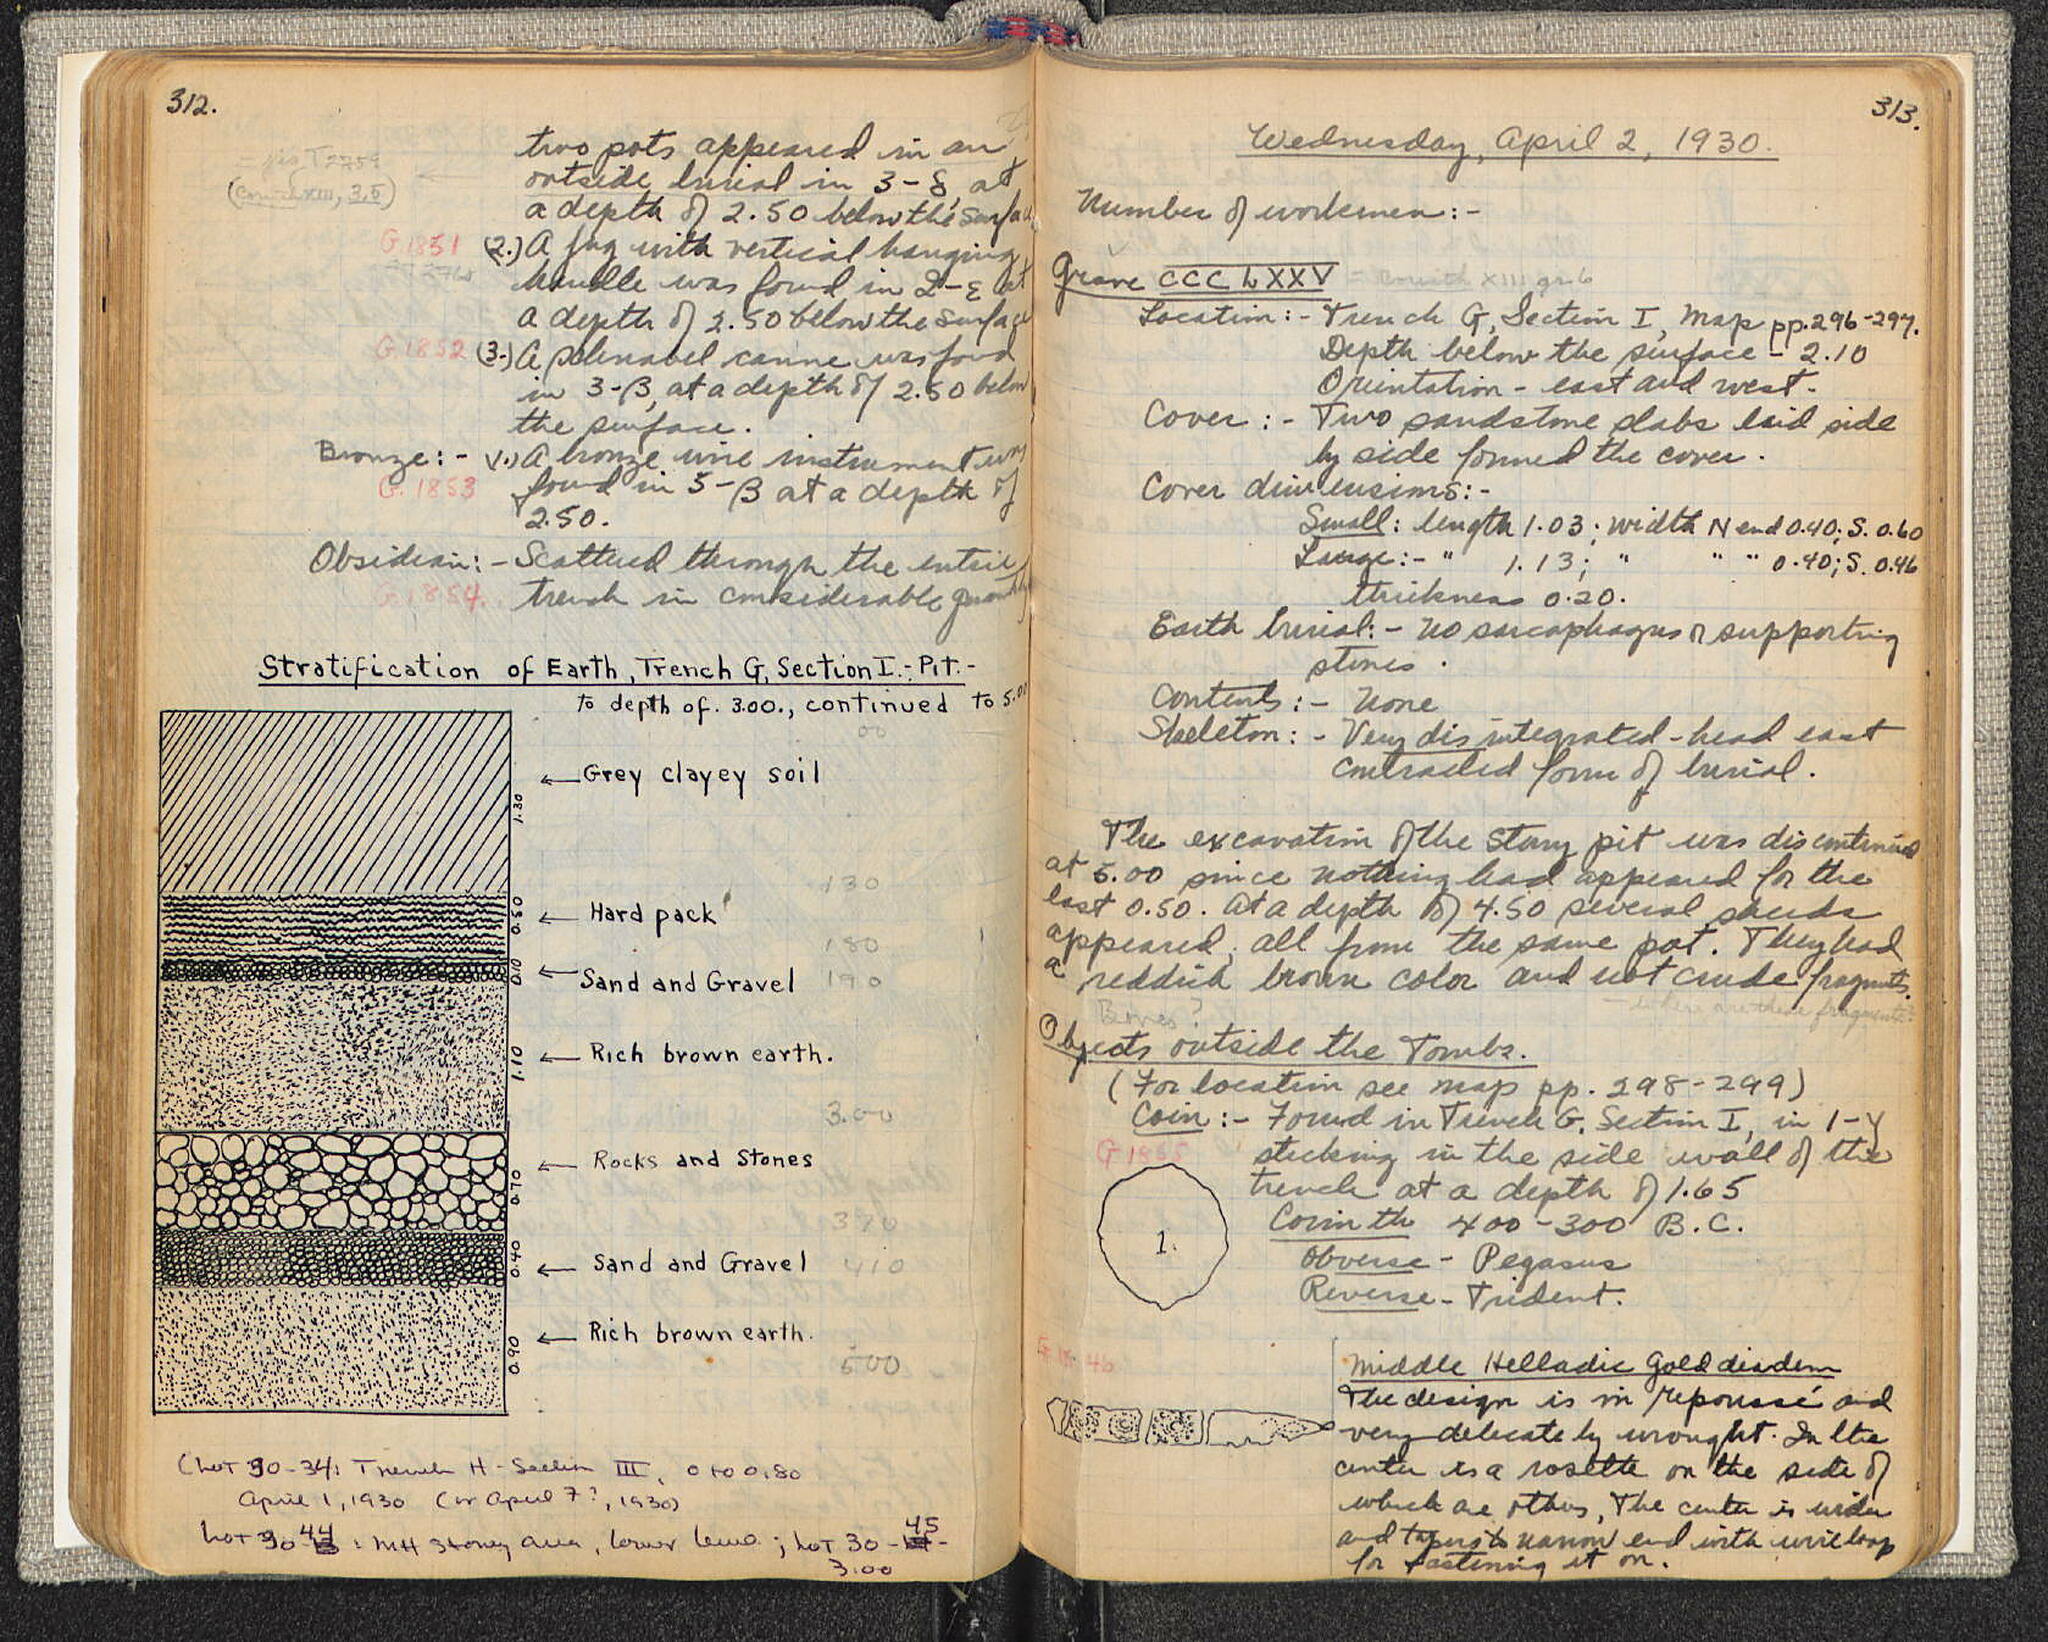 312.
= pig T2759
(Corinth XIII, 3, 5)
two pots appeared in an
outside burial in 3-δ, at
a depth of 2.50 below the surface
G 1851 (2.) A jug with vertical hanging
handle was found in 2-ε at
a depth of 2.50 below the surface
G 1852 (3.) A schnabel canne was found
in 3-β, at a depth of 2.50 below
the surface.
Bronze:- A bronze wire instrument was
G. 1853 found in 5-β at a depth of
2.50.
Obsidian:- Scattered through the entire
G. 1854. trench in considerable quantity
Stratification of Earth, Trench G, Section I.-: Pit.-
to depth of. 3.00., continued to 5.00
00
Grey clayey soil
1.30
130
Hard pack
0.50
180
Sand and Gravel
0.10
190
Rich brown earth.
1.10
3.00
Rocks and Stones
0.70
370
Sand and Gravel
0.40
410
Rich brown earth.
0.90
500
(Lot 30-34: Trench H - Section III, 0 to 0.80
April 1, 1930 (or April 7?, 1930)
Lot 30-44: MH stoney area, lower level; Lot 30-45-
3.00
313.
Wednesday, April 2, 1930.
Number of workmen:-
Grave CCCLXXV = Corinth XIII gr. 6
Location:- Trench G, Section I, Map pp. 296-297.
Depth below the surface - 2.10
Orientation - east and west.
Cover:- Two sandstone slabs laid side
by side formed the cover.
Cover dimensions:-
Small: length 1.03; width N end 0.40; S. 0.60
Large:- " 1.13; " " " 0.40; S. 0.46
thickness 0.20.
Earth burial:- No sarcophagus or supporting
stones.
Contents:- None
Skeleton:- Very disintegrated - head east
contracted form of burial.
The excavation of the stony pit was discontinued
at 5.00 since nothing had appeared for the
last 0.50. At a depth of 4.50 several sherds
appeared, all from the same pot. They had
a reddish brown color and not crude fragments.
Bones? - where are these fragments?
Objects outside the Tombs.
(For location see map pp. 298-299)
Coin:- Found in Trench G, Section I, in 1-γ
G 1855 sticking in the side wall of the
trench at a depth of 1.65
Corinth 400-300 B.C.
1.
Obverse - Pegasus
Reverse - Trident.
Middle Helladic Gold diadem
The design is in repoussé and
very delicately wrought. In the
center is a rosette on the side of
which are others, The center is wider
and tapers to narrow end with wire loop
for fastening it on.